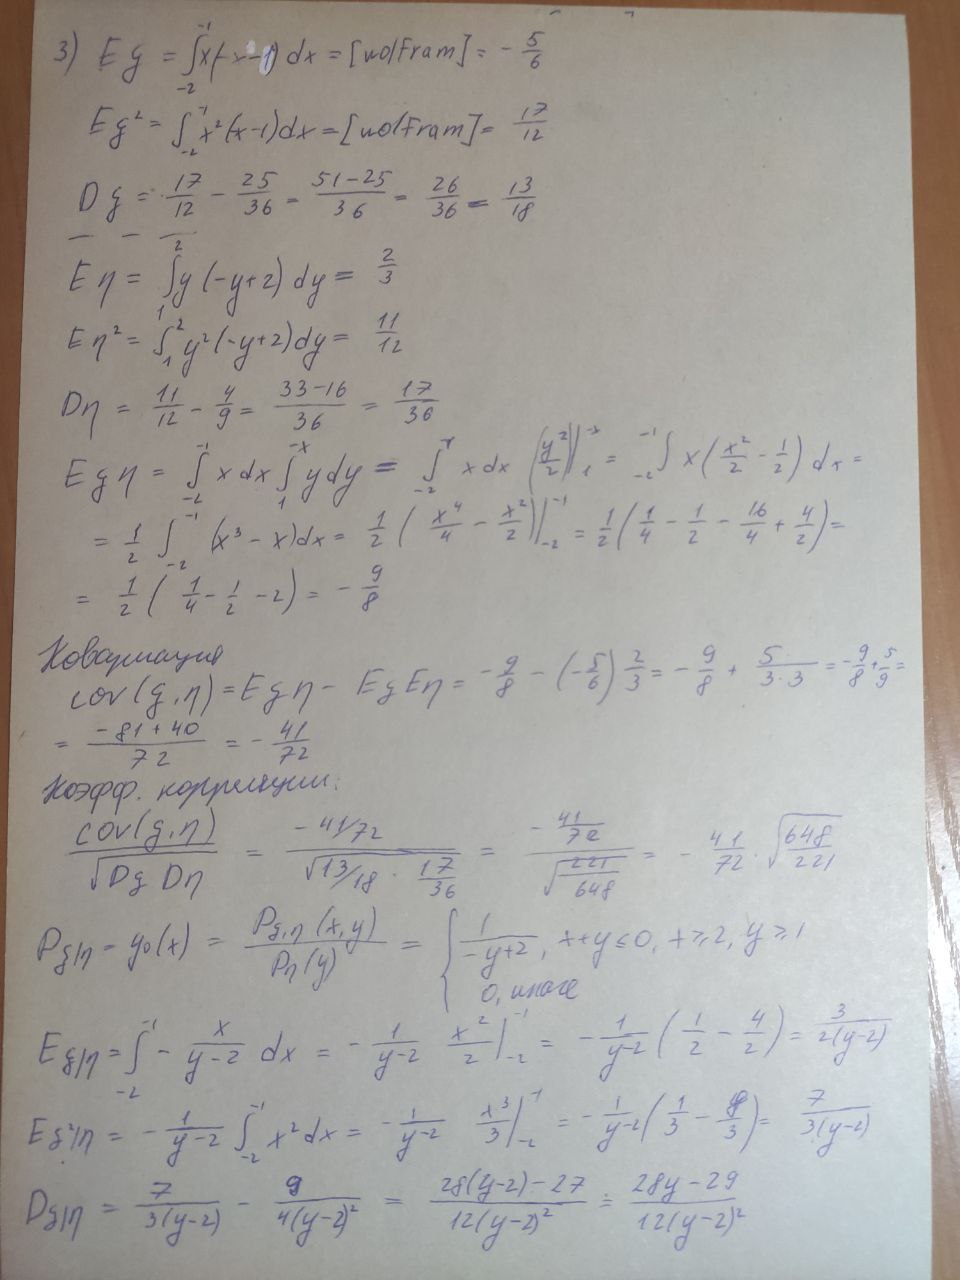 3) Eξ = ∫_{-2}^{-1} x(-x-1) dx = [wolfram] = - 5/6
Eξ² = ∫_{-2}^{-1} x²(x-1)dx = [wolfram] = 17/12
Dξ = 17/12 - 25/36 = (51-25)/36 = 26/36 = 13/18
Eη = ∫_{1}^{2} y(-y+2) dy = 2/3
Eη² = ∫_{1}^{2} y²(-y+2)dy = 11/12
Dη = 11/12 - 4/9 = (33-16)/36 = 17/36
Eξη = ∫_{-2}^{-1} x dx ∫_{1}^{-x} y dy = ∫_{-2}^{-1} x dx (y²/2)|_{1}^{-x} = ∫_{-2}^{-1} x(x²/2 - 1/2) dx =
= 1/2 ∫_{-2}^{-1} (x³-x)dx = 1/2 (x⁴/4 - x²/2)|_{-2}^{-1} = 1/2(1/4 - 1/2 - 16/4 + 4/2) =
= 1/2 (1/4 - 1/2 - 2) = - 9/8
Ковариация
cov(ξ,η) = Eξη - EξEη = - 9/8 - (-5/6) 2/3 = - 9/8 + 5/(3·3) = - 9/8 + 5/9 =
= (-81+40)/72 = - 41/72
Коэфф. корреляции:
cov(ξ,η)/√(Dξ Dη) = (-41/72)/√(13/18 · 17/36) = (-41/72)/√(221/648) = - 41/72 · √(648/221)
Pξ|η = y₀(x) = Pξ,η(x,y)/Pη(y) = { 1/(-y+2), x+y≤0, x≥2, y≥1
0, иначе
Eξ|η = ∫_{-2}^{-1} - x/(y-2) dx = - 1/(y-2) x²/2 |_{-2}^{-1} = - 1/(y-2) (1/2 - 4/2) = 3/(2(y-2))
Eξ²|η = - 1/(y-2) ∫_{-2}^{-1} x² dx = - 1/(y-2) x³/3 |_{-2}^{-1} = - 1/(y-2) (1/3 - 8/3) = 7/(3(y-2))
Dξ|η = 7/(3(y-2)) - 9/(4(y-2)²) = (28(y-2)-27)/(12(y-2)²) = (28y-29)/(12(y-2)²)